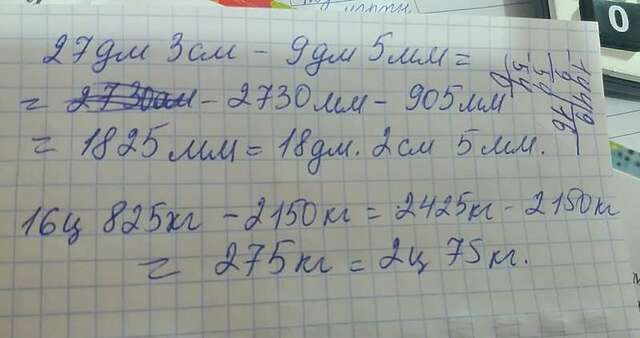 27дм 3см - 9дм 5мм =
= - 2730мм - 905мм
= 1825мм = 18дм. 2см 5мм.
16ц 825кг - 2150кг = 2425кг - 2150кг
= 275кг = 2ц 75кг.
0